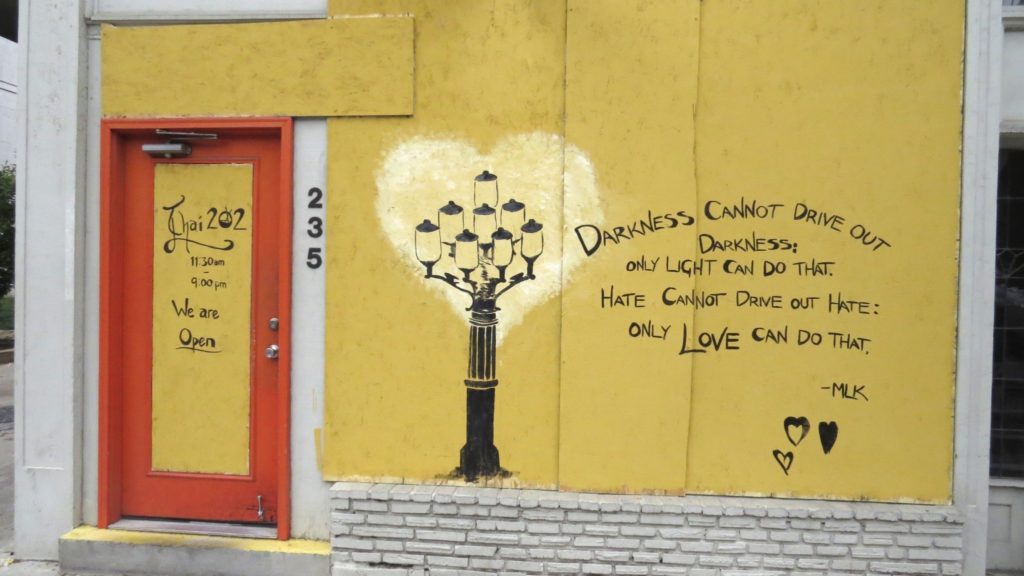 Thai 202
11:30am
-
9:00pm
We are
Open
235
DARKNESS CANNOT DRIVE OUT
DARKNESS:
ONLY LIGHT CAN DO THAT.
HATE CANNOT DRIVE OUT HATE:
ONLY LOVE CAN DO THAT.
-MLK